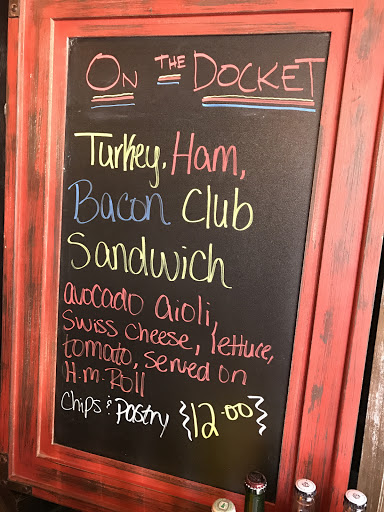 On THE DOCKET
Turkey, Ham,
Bacon Club
Sandwich
avocado aioli,
Swiss cheese, lettuce,
tomato, served on
H.M. Roll
Chips & Pastry {12.00}